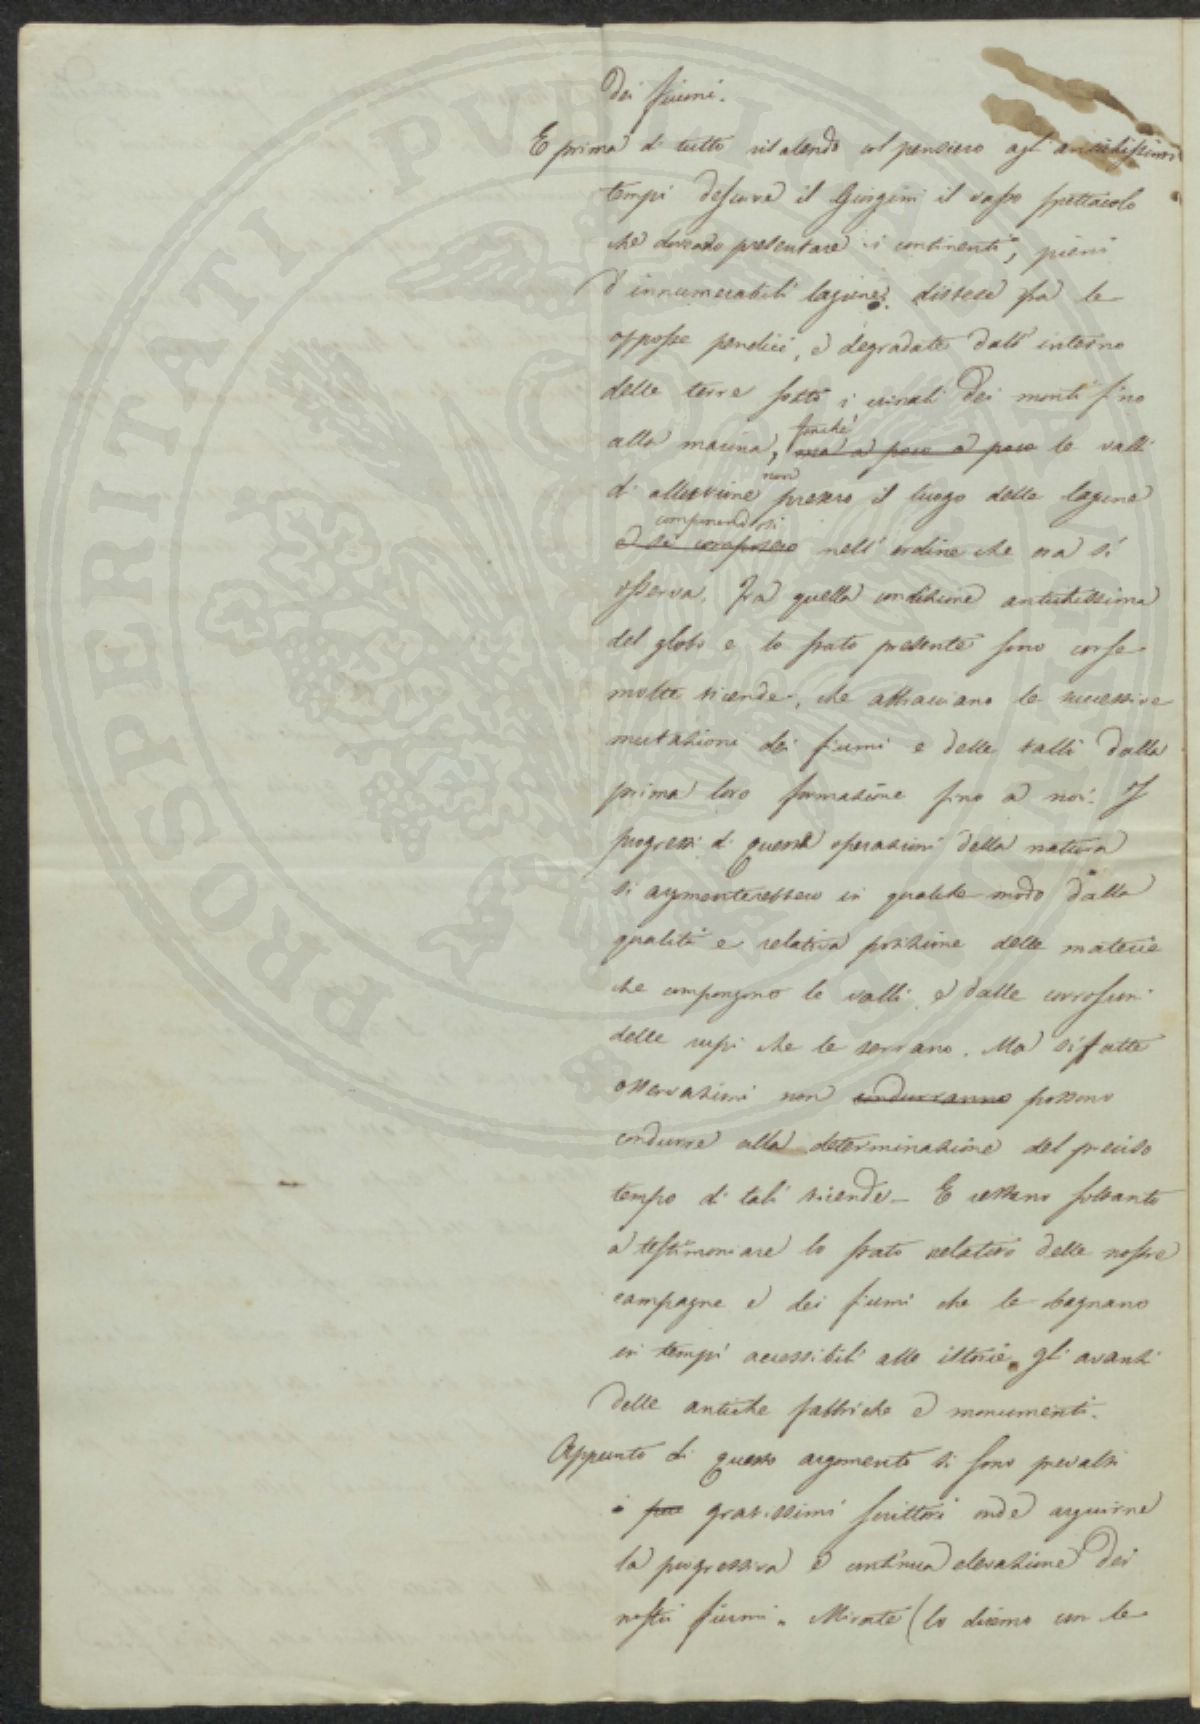 dei fiumi.
E prima di tutto risalendo col pensiero agli antichissimi
tempi descrive il Giorgini il vasto spettacolo
che doveano presentare i continenti, pieni
d'innumerabili lagune, distese fra le
opposte pendici, e degradate dall'interno
delle terre sotto i crinali dei monti fino
alla marina, finchè
ma a poco a poco le valli
di alluvione non presero il luogo delle lagune
componendosi
e si composero nell'ordine che ora si
osserva. Fra quella condizione antichissima
del globo e lo stato presente sono corse
molte vicende, che abbracciano le successive
mutazioni dei fiumi e delle valli dalla
prima loro formazione fino a noi. I
progressi di queste operazioni della natura
si argomenterebbero in qualche modo dalla
qualità e relativa posizione delle materie
che compongono le valli, e dalle corrosioni
delle rupi che le serrano. Ma siffatte
osservazioni non condurranno possono
condurre alla determinazione del preciso
tempo di tali vicende. E restano soltanto
a testimoniare lo stato relativo delle nostre
campagne e dei fiumi che le bagnano
in tempi accessibili alle istorie, gli avanzi
delle antiche fabbriche e monumenti.
Appunto di questo argomento si sono prevalsi
i gravissimi scrittori onde arguirne
la progressiva e continua elevazione dei
nostri fiumi. Mirate (lo diremo con le
PROSPERITATI PVBLICAE